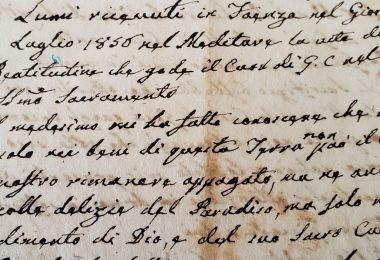 Lumi ricevuti in Faenza nel Gior
Luglio 1856 nel Meditare la vita di
Beatitudine che gode il Cuor di G. C nel
SSmo Sacramento
l medesimo mi ha fatto conoscere che
solo nei beni di questa Terra non può il
nostro rimanere appagato, ma ne an
colle delizie del Paradiso, ma solo n
dimento di Dio, e del suo Sacro Cu